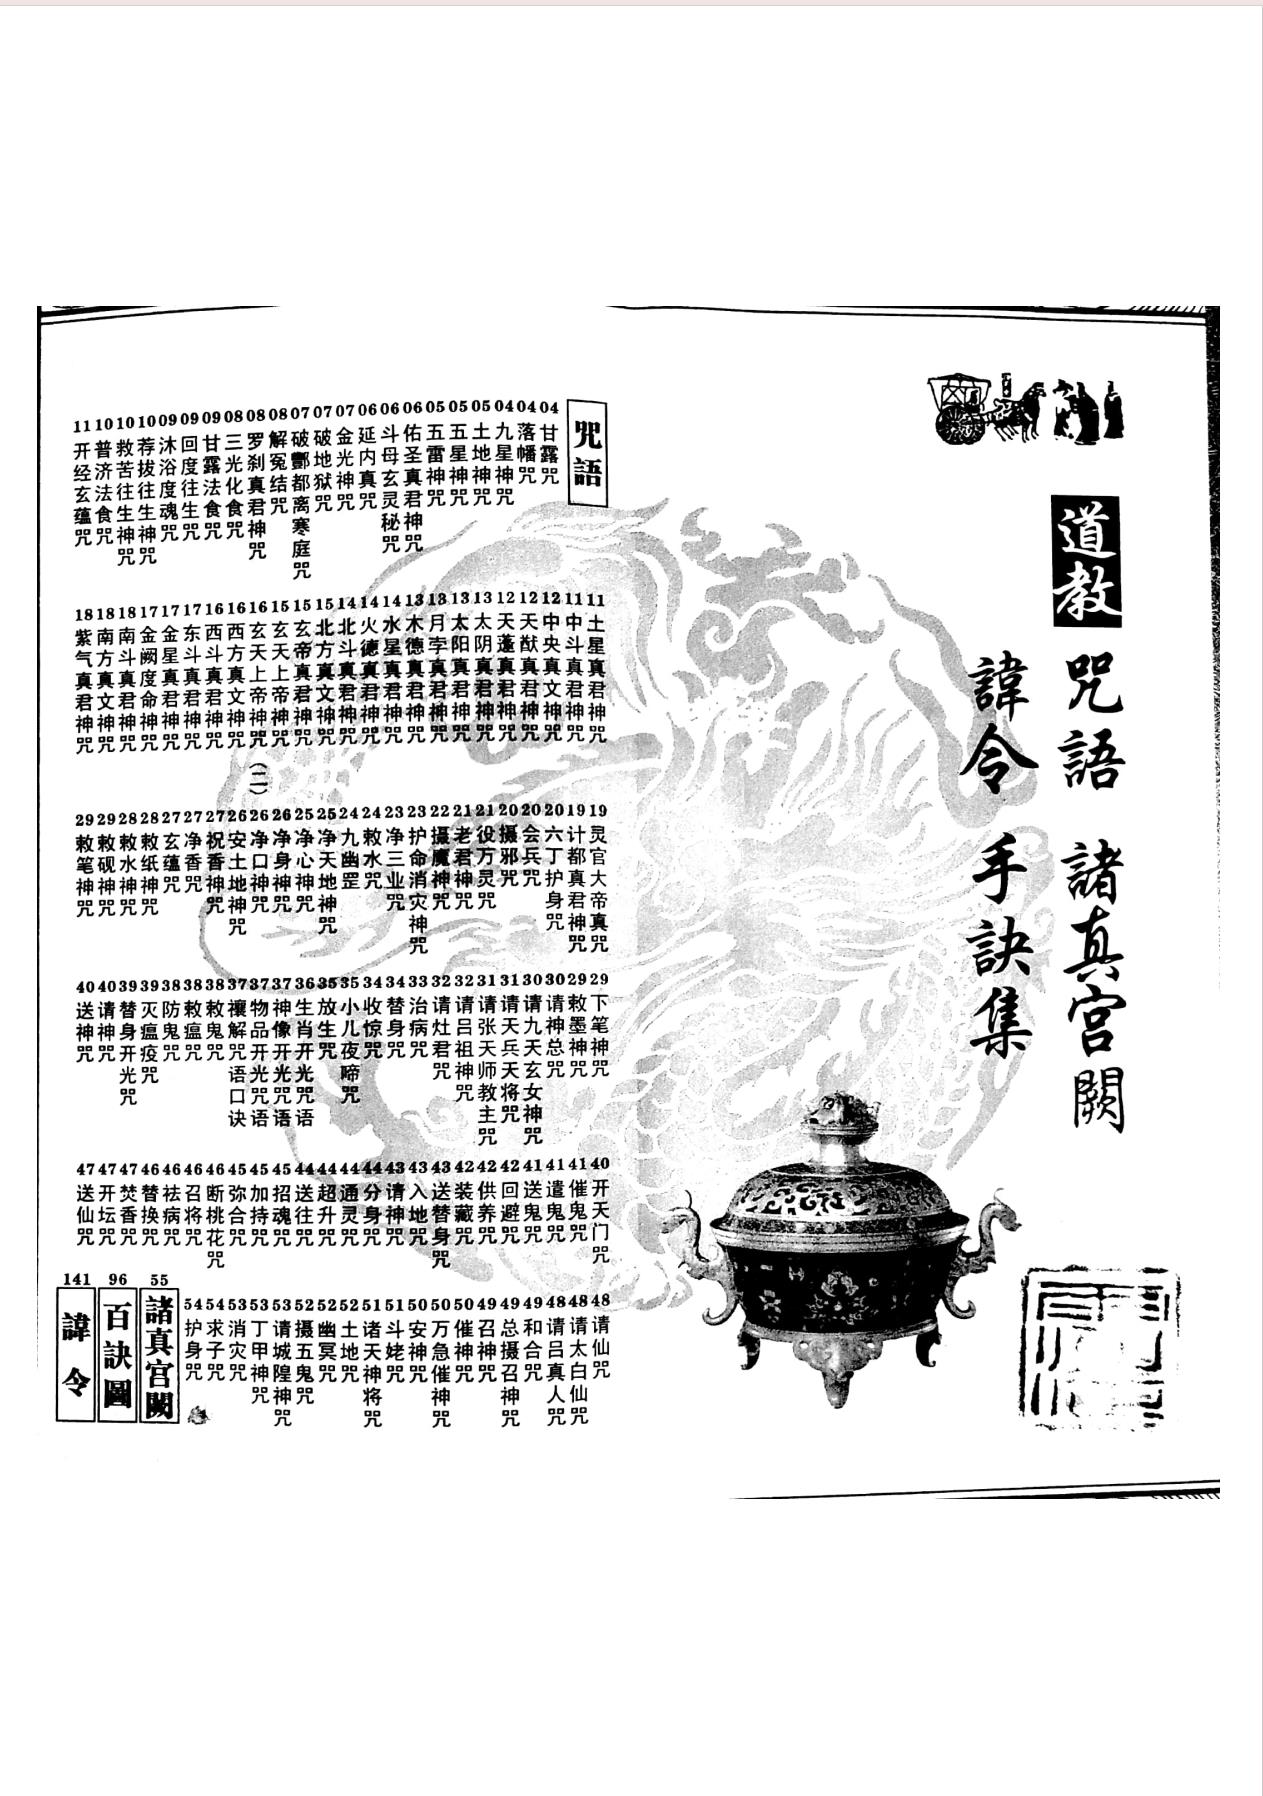 道教
咒語 諸真宫闕
諱令 手訣集
咒語
04 甘露咒
04 落幡咒
04 九星神咒
05 土地神咒
05 五星神咒
05 五雷神咒
06 佑圣真君神咒
06 斗母玄灵秘咒
06 延内真咒
07 金光神咒
07 破地狱咒
07 破酆都离寒庭咒
08 解冤结咒
08 罗刹真君神咒
08 三光化食咒
09 甘露法食咒
09 回度往生咒
09 沐浴度魂咒
10 荐拔往生神咒
10 救苦往生神咒
10 普济法食咒
11 开经玄蕴咒
11 土星真君神咒
11 中斗真君神咒
12 中央真文神咒
12 天猷真君神咒
12 天蓬真君神咒
13 太阴真君神咒
13 太阳真君神咒
13 月孛真君神咒
13 木德真君神咒
14 水星真君神咒
14 火德真君神咒
14 北斗真君神咒
15 北方真文神咒
15 玄帝真君神咒
15 玄天上帝神咒
16 玄天上帝神咒(二)
16 西方真文神咒
16 西斗真君神咒
17 东斗真君神咒
17 金星真君神咒
17 金阙度命神咒
18 南斗真君神咒
18 南方真文神咒
18 紫气真君神咒
19 灵官大帝真咒
19 计都真君神咒
20 六丁护身咒
20 会兵咒
20 摄邪咒
21 役万灵咒
21 老君神咒
22 摄魔神咒
23 护命消灾神咒
23 净三业咒
24 敕水咒
24 九幽罡
25 净天地神咒
25 净心神咒
26 净身神咒
26 净口神咒
26 安土地神咒
27 祝香神咒
27 净香咒
27 玄蕴咒
28 敕纸神咒
28 敕水神咒
29 敕砚神咒
29 敕笔神咒
29 下笔神咒
29 敕墨神咒
30 请神总咒
30 请九天玄女神咒
31 请天兵天将咒
31 请张天师教主咒
32 请吕祖神咒
32 请灶君咒
33 治病咒
34 替身咒
34 收惊咒
35 小儿夜啼咒
35 放生咒
36 生肖开光咒语
37 神像开光咒语
37 物品开光咒语
37 禳解咒语口诀
38 敕鬼咒
38 敕瘟咒
38 防鬼咒
39 灭瘟疫咒
39 替身开光咒
40 请神咒
40 送神咒
40 开天门咒
41 催鬼咒
41 遣鬼咒
41 送鬼咒
42 回避咒
42 供养咒
42 装藏咒
43 送替身咒
43 入地咒
43 请神咒
44 分身咒
44 通灵咒
44 超升咒
44 送往咒
45 招魂咒
45 加持咒
45 弥合咒
46 断桃花咒
46 召将咒
46 祛病咒
46 替换咒
47 焚香咒
47 开坛咒
47 送仙咒
48 请仙咒
48 请太白仙咒
48 请吕真人咒
49 和合咒
49 总摄召神咒
49 召神咒
50 催神咒
50 万急催神咒
50 安神咒
51 斗姥咒
51 诸天神将咒
52 土地咒
52 幽冥咒
52 摄五鬼咒
53 请城隍神咒
53 丁甲神咒
53 消灾咒
54 求子咒
54 护身咒
55 諸真宫闕
96 百訣圖
141 諱令